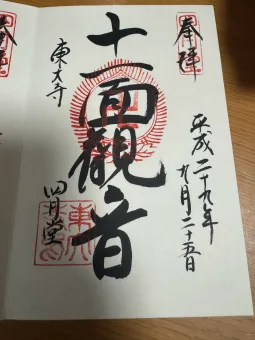 奉拝
平成二十九年
九月二十五日
十一面観音
東大寺
四月堂
奉拝